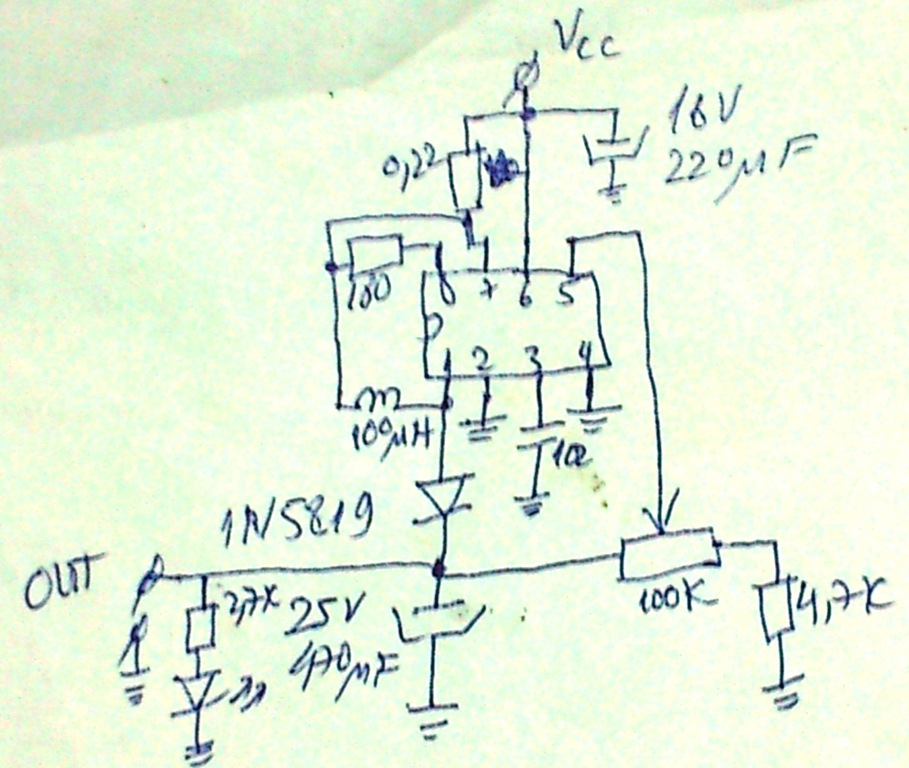 Vcc
16V
220µF
0,22
100
8 7 6 5
1 2 3 4
100µH
1N5819
OUT
2,7K
25V
470µF
100K
4,7K